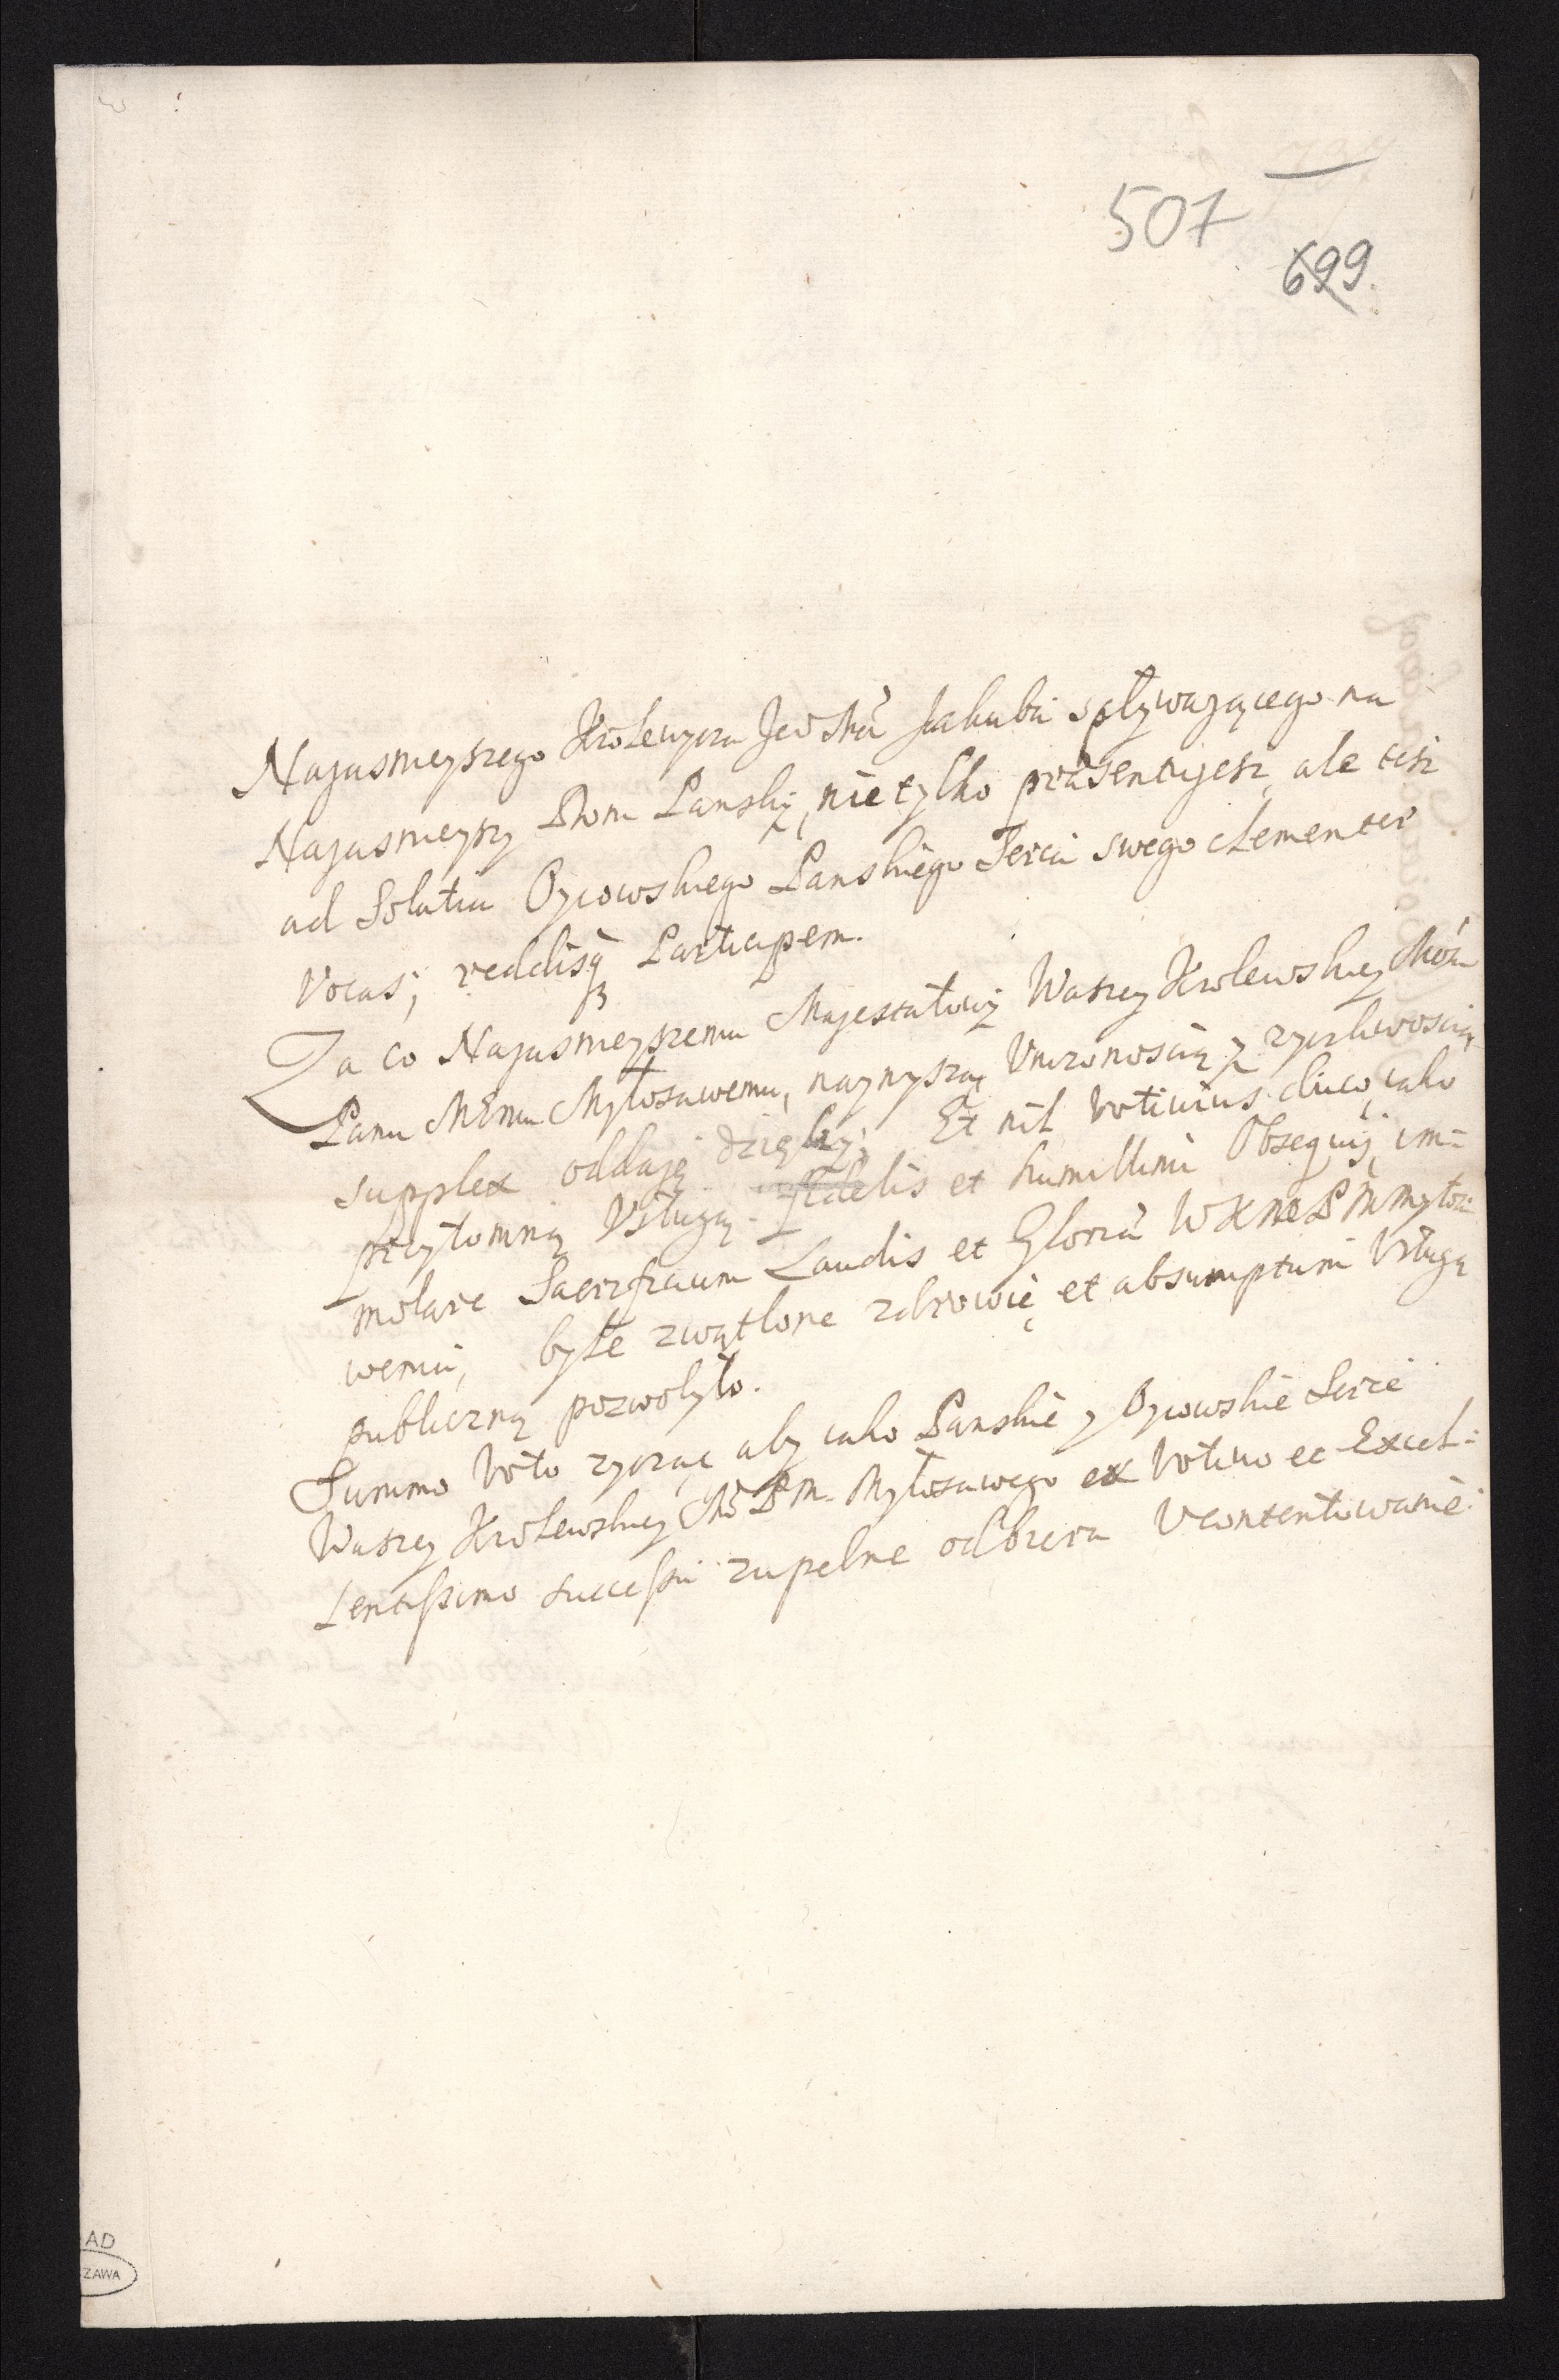 507
699.
Najasnieyszego Krolewyca Je͠o Mci Jakuba spływającego na
Najasnieyszy Dom Panskį, nie tylko præsentujesz, ale tesz
ad Solatia Oycowskiego Panskiego Serca swego clementer
Vocas; reddisq₃ Participem.
Za co Najasnieyszemu Majestatowį Waszey Krolewskiey Mści
Panu Memu Mylosciwemu, naynyszą Vnizonoscią y zyczliwoscią
supplex oddaję dzięky; Et nil votivius duco, iako
przytomną Vsługą fidelis et humillimi Obsequij, im=
molare Sacrificium Laudis et Gloriæ W K M P M myłosci=
wemu, byłe zwątlone zdrowię et absumptum Vsługę
publiczną pozwolyło.
Summo Voto zycząc aby iako Panskie y Oycowskie Serce
Waszey Krolewskiey Mći P M. Mylosciwego ex Votivo et Excel=
lentissimo successu zupelne odbiera Vcontentowanie.
AD
ZAWA